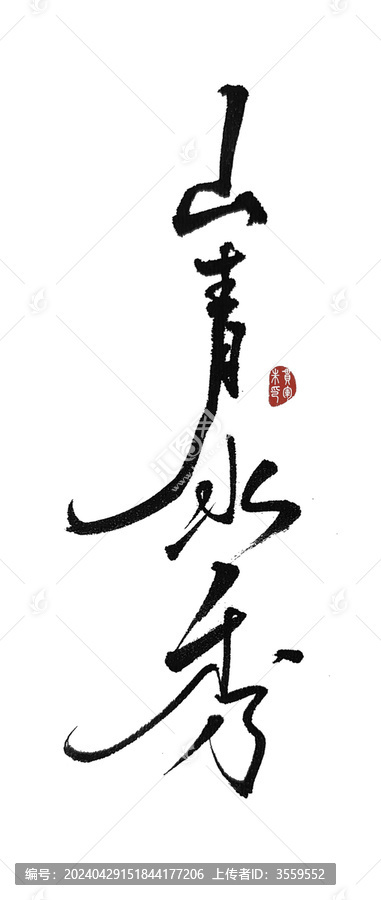 山青水秀
编号：20240429151844177206 上传者ID：3559552